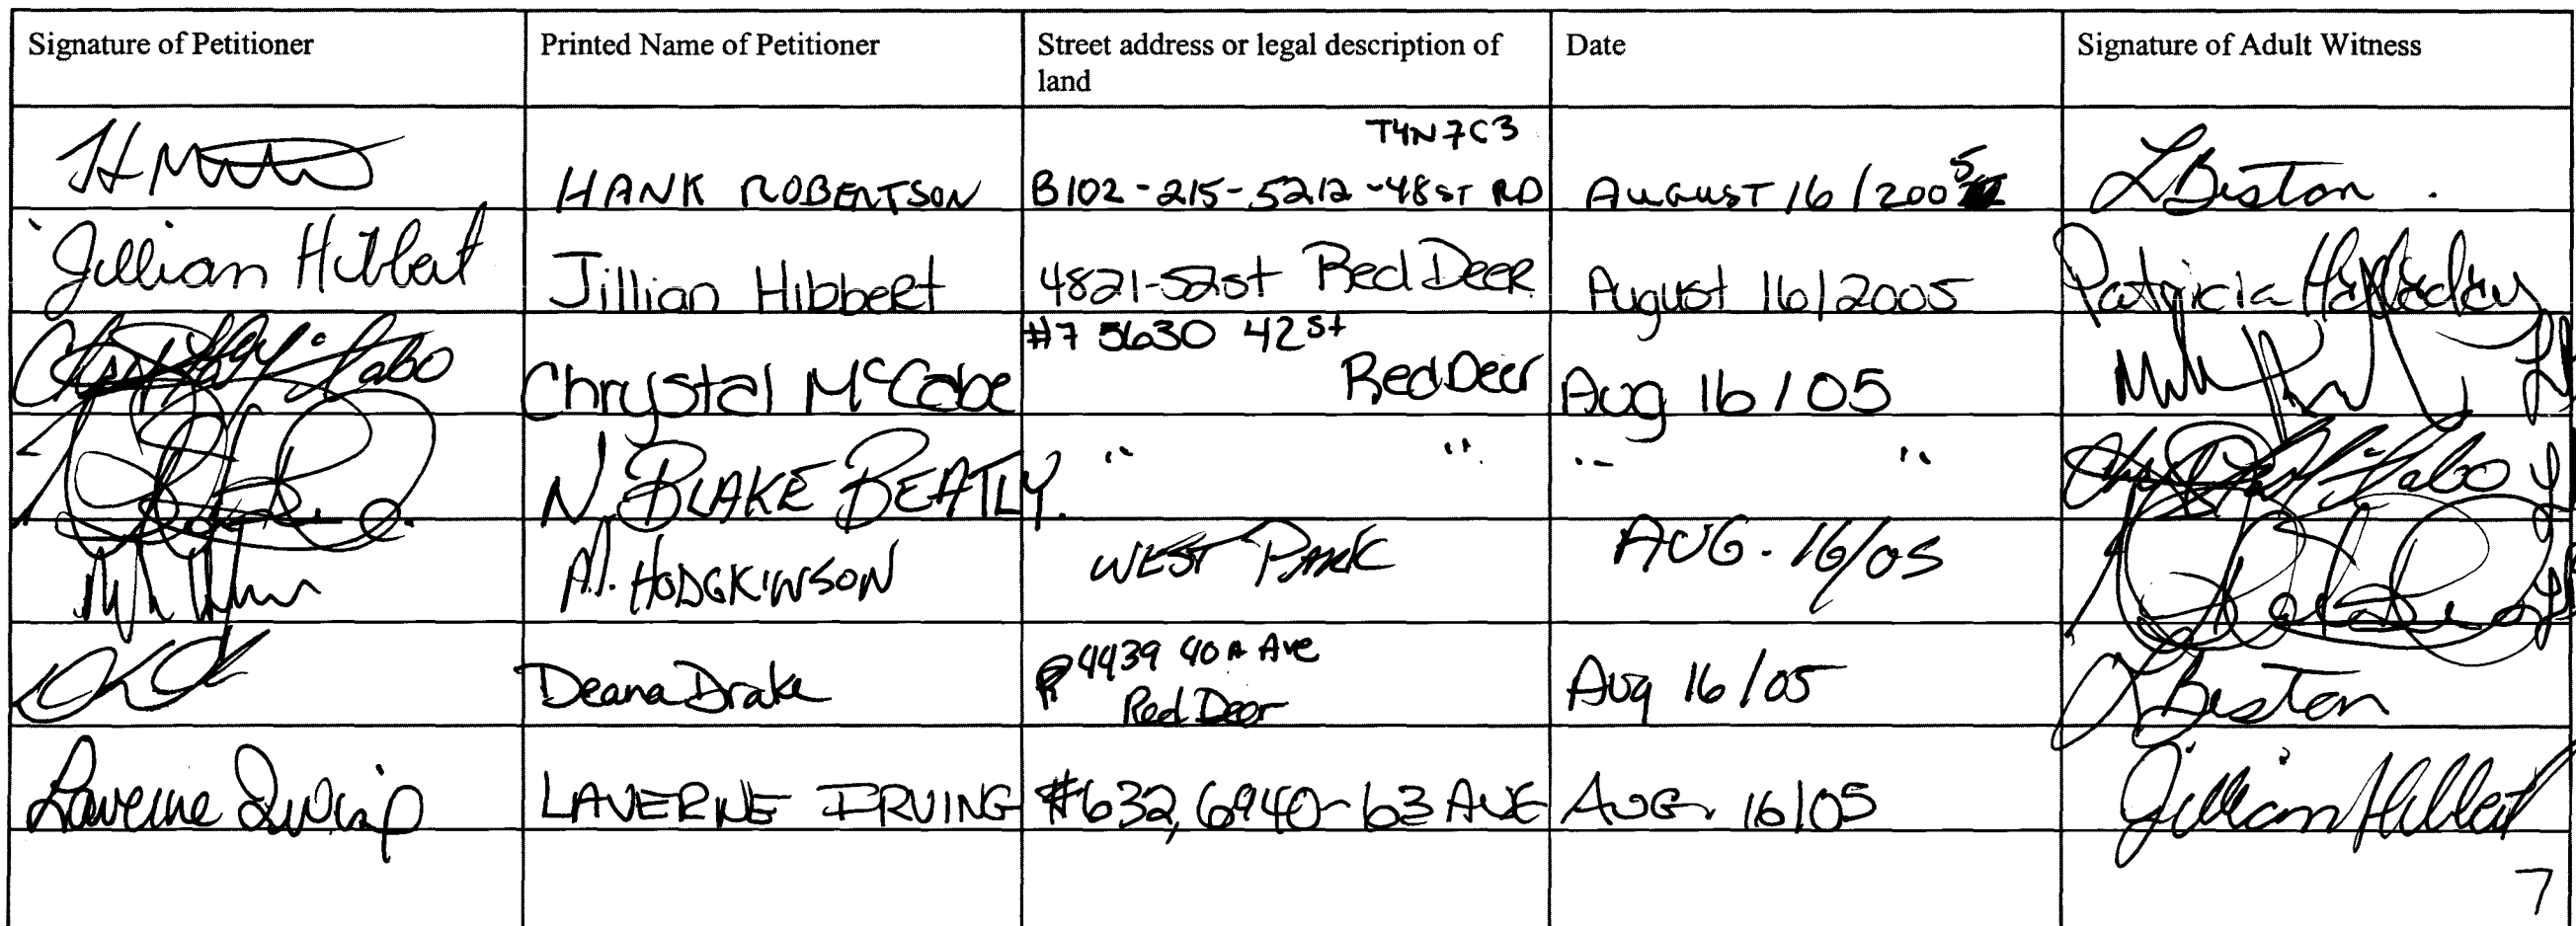 Signature of Petitioner
Printed Name of Petitioner
Street address or legal description of
land
Date
Signature of Adult Witness
HANK ROBERTSON
T4N7C3
B102-215-5212-48ST RD
AUGUST 16/2005
LBeston.
Jillian Hibbert
Jillian Hibbert
4821-52st Red Deer
August 16/2005
Patricia
Chrystal McCabe
#7 5630 42st
Red Deer
Aug 16/05
N. BLAKE BEATTY.
" "
" "
M. HODGKINSON
WEST PARK
AUG. 16/05
Deana Drake
4439 40A Ave
Red Deer
Aug 16/05
LBeston
Laverne Irving
LAVERNE IRVING
#632, 6940-63 AVE
AUG. 16/05
Jillian Hibbert
7